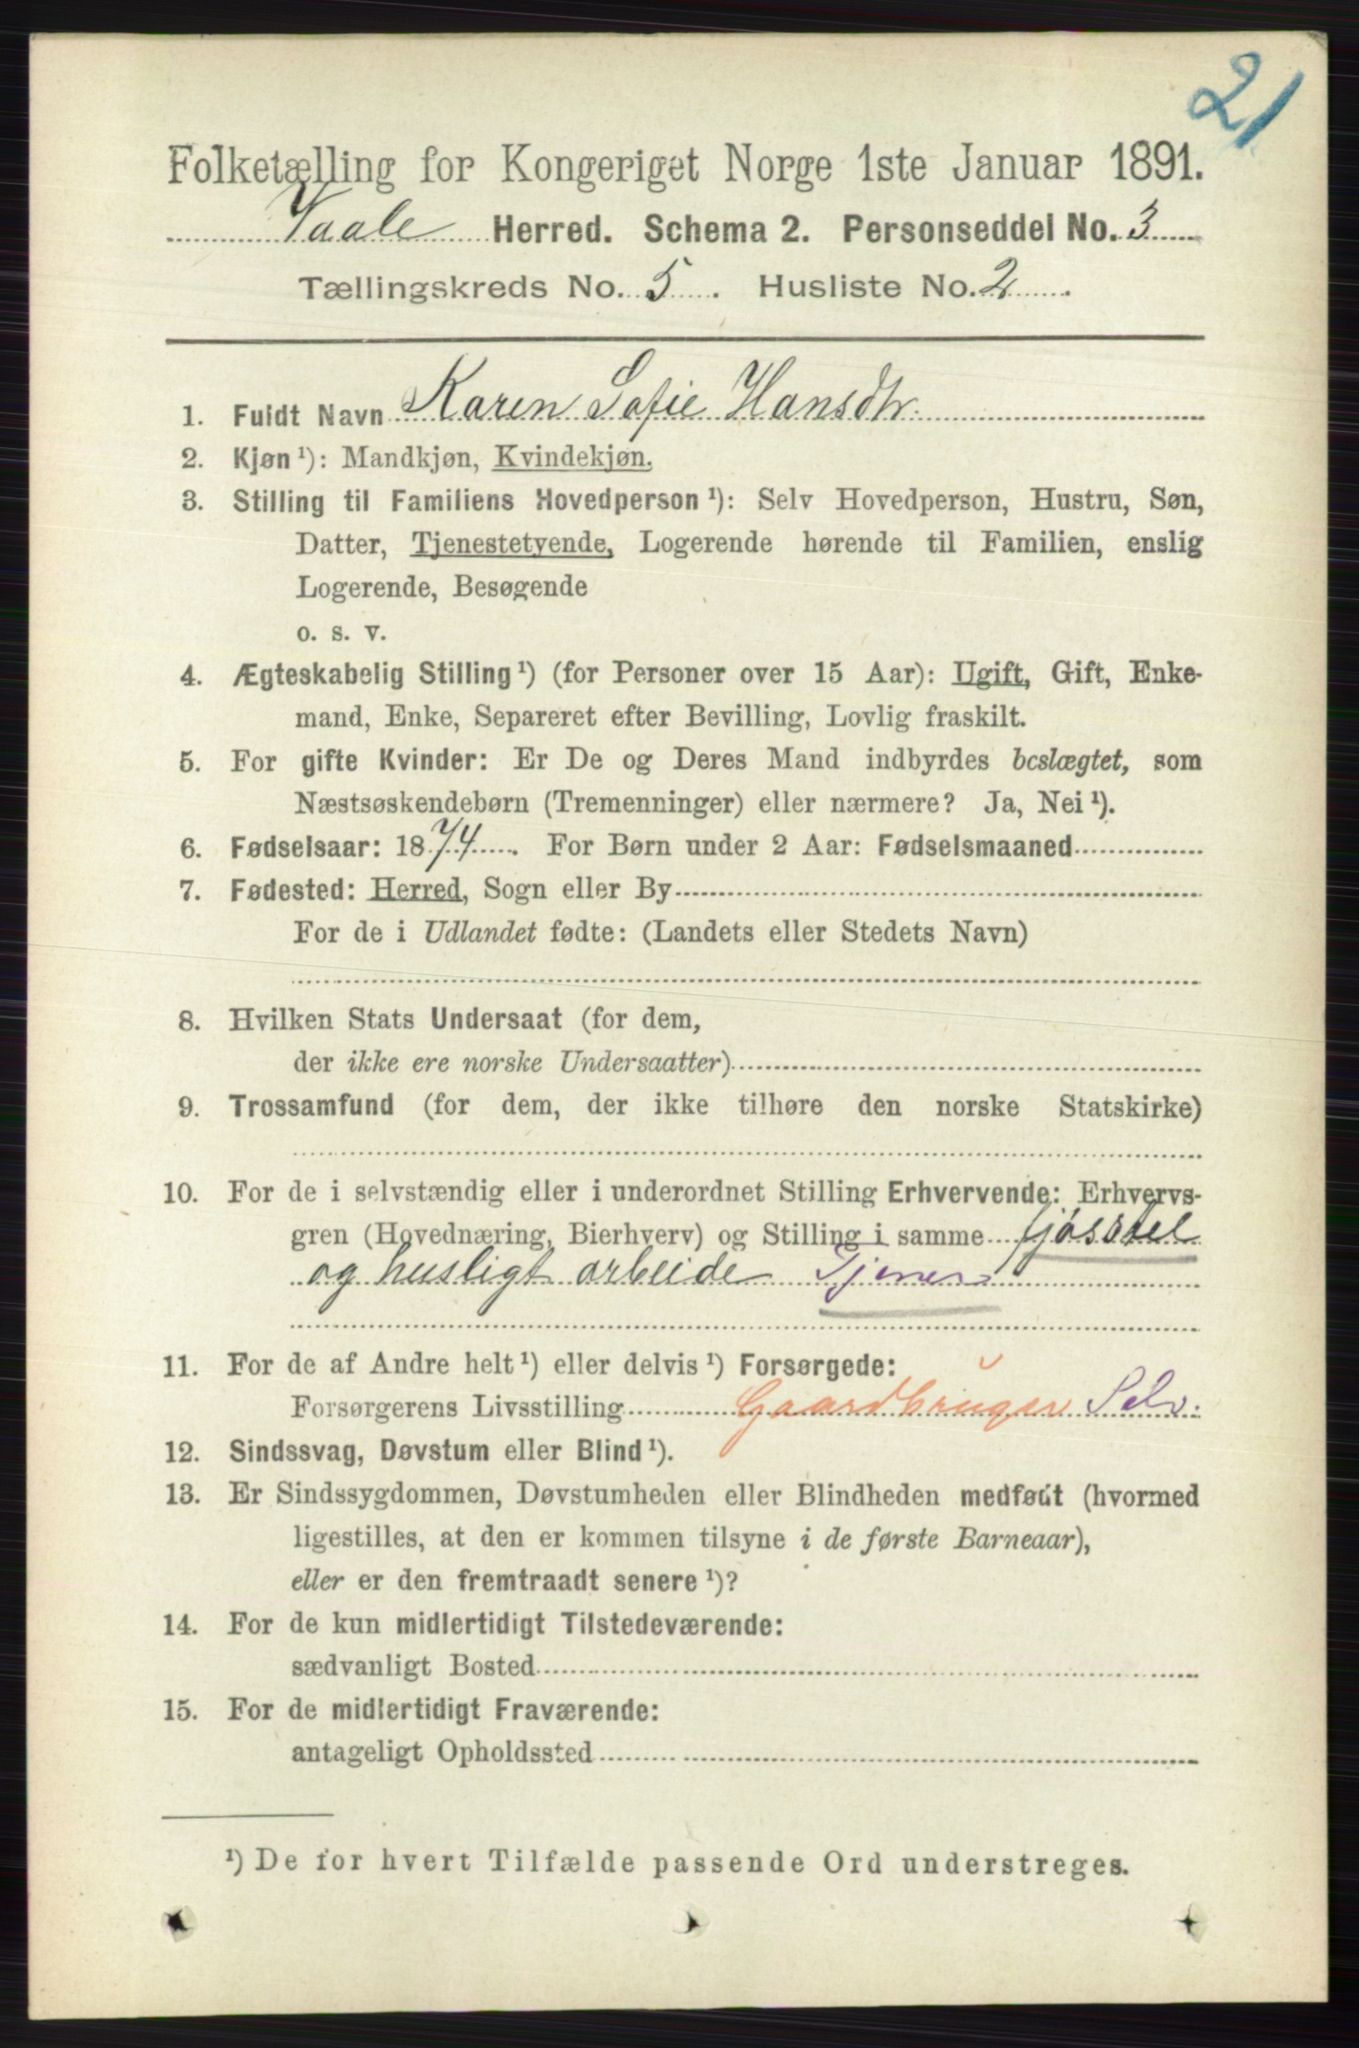 21
Folketælling for Kongeriget Norge 1ste Januar 1891.
Vaale Herred. Schema 2. Personseddel No. 3
Tællingskreds No. 5. Husliste No. 2.
1. Fuldt Navn Karen Sofie Hansdtr.
2. Kjøn ¹): Mandkjøn, Kvindekjøn.
3. Stilling til Familiens Hovedperson ¹): Selv Hovedperson, Hustru, Søn,
Datter, Tjenestetyende, Logerende hørende til Familien, enslig
Logerende, Besøgende
o. s. v.
4. Ægteskabelig Stilling ¹) (for Personer over 15 Aar): Ugift, Gift, Enke-
mand, Enke, Separeret efter Bevilling, Lovlig fraskilt.
5. For gifte Kvinder: Er De og Deres Mand indbyrdes beslægtet, som
Næstsøskendebørn (Tremenninger) eller nærmere? Ja, Nei ¹).
6. Fødselsaar: 1874. For Børn under 2 Aar: Fødselsmaaned
7. Fødested: Herred, Sogn eller By
For de i Udlandet fødte: (Landets eller Stedets Navn)
8. Hvilken Stats Undersaat (for dem,
der ikke ere norske Undersaatter)
9. Trossamfund (for dem, der ikke tilhøre den norske Statskirke)
10. For de i selvstændig eller i underordnet Stilling Erhvervende: Erhvervs-
gren (Hovednæring, Bierhverv) og Stilling i samme fjøsstel
og husligt arbeide Tjener
11. For de af Andre helt ¹) eller delvis ¹) Forsørgede:
Forsørgerens Livsstilling Gaardbruger Selv.
12. Sindssvag, Døvstum eller Blind ¹).
13. Er Sindssygdommen, Døvstumheden eller Blindheden medfødt (hvormed
ligestilles, at den er kommen tilsyne i de første Barneaar),
eller er den fremtraadt senere ¹)?
14. For de kun midlertidigt Tilstedeværende:
sædvanligt Bosted
15. For de midlertidigt Fraværende:
antageligt Opholdssted
¹) De for hvert Tilfælde passende Ord understreges.